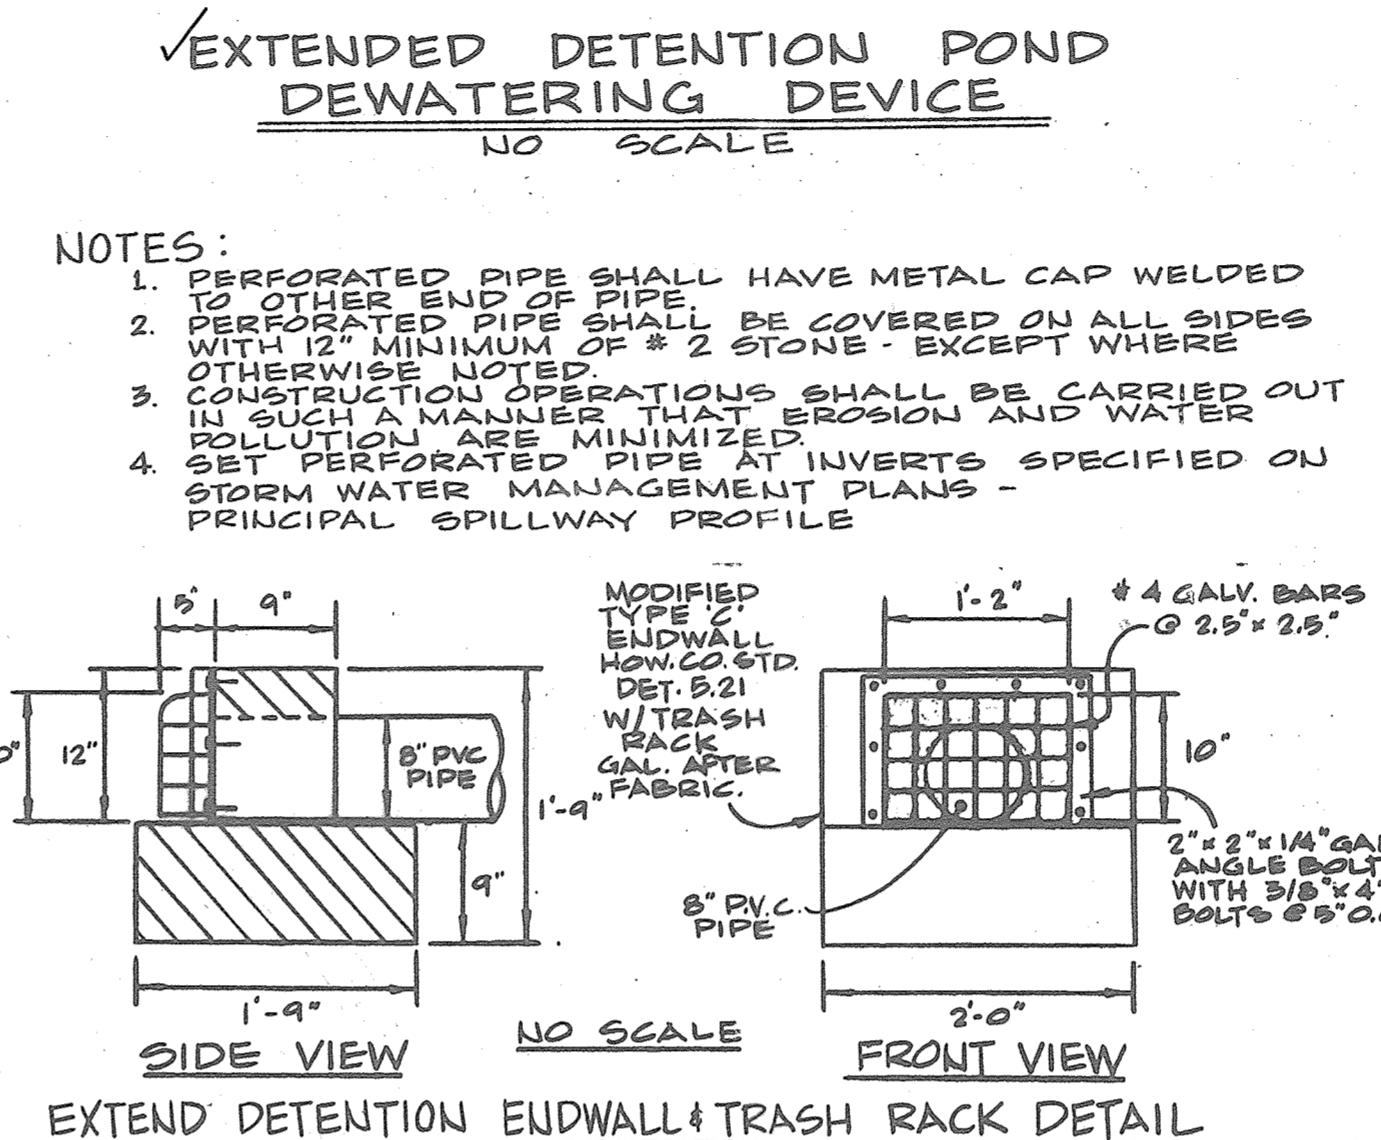 ✓EXTENDED DETENTION POND
DEWATERING DEVICE
NO SCALE
NOTES:
1. PERFORATED PIPE SHALL HAVE METAL CAP WELDED
TO OTHER END OF PIPE.
2. PERFORATED PIPE SHALL BE COVERED ON ALL SIDES
WITH 12" MINIMUM OF # 2 STONE - EXCEPT WHERE
OTHERWISE NOTED.
3. CONSTRUCTION OPERATIONS SHALL BE CARRIED OUT
IN SUCH A MANNER THAT EROSION AND WATER
POLLUTION ARE MINIMIZED.
4. SET PERFORATED PIPE AT INVERTS SPECIFIED ON
STORM WATER MANAGEMENT PLANS -
PRINCIPAL SPILLWAY PROFILE
5"
9"
12"
8" PVC
PIPE
1'-9"
9"
1'-9"
SIDE VIEW
MODIFIED
TYPE 'C'
ENDWALL
HOW. CO. STD.
DET. 5.21
W/ TRASH
RACK
GAL. AFTER
FABRIC.
1'-2"
# 4 GALV. BARS
@ 2.5" x 2.5"
10"
2" x 2" x 1/4"
ANGLE
WITH 3/8" x 4"
BOLTS @ 5"
8" P.V.C.
PIPE
2'-0"
NO SCALE
FRONT VIEW
EXTEND DETENTION ENDWALL & TRASH RACK DETAIL